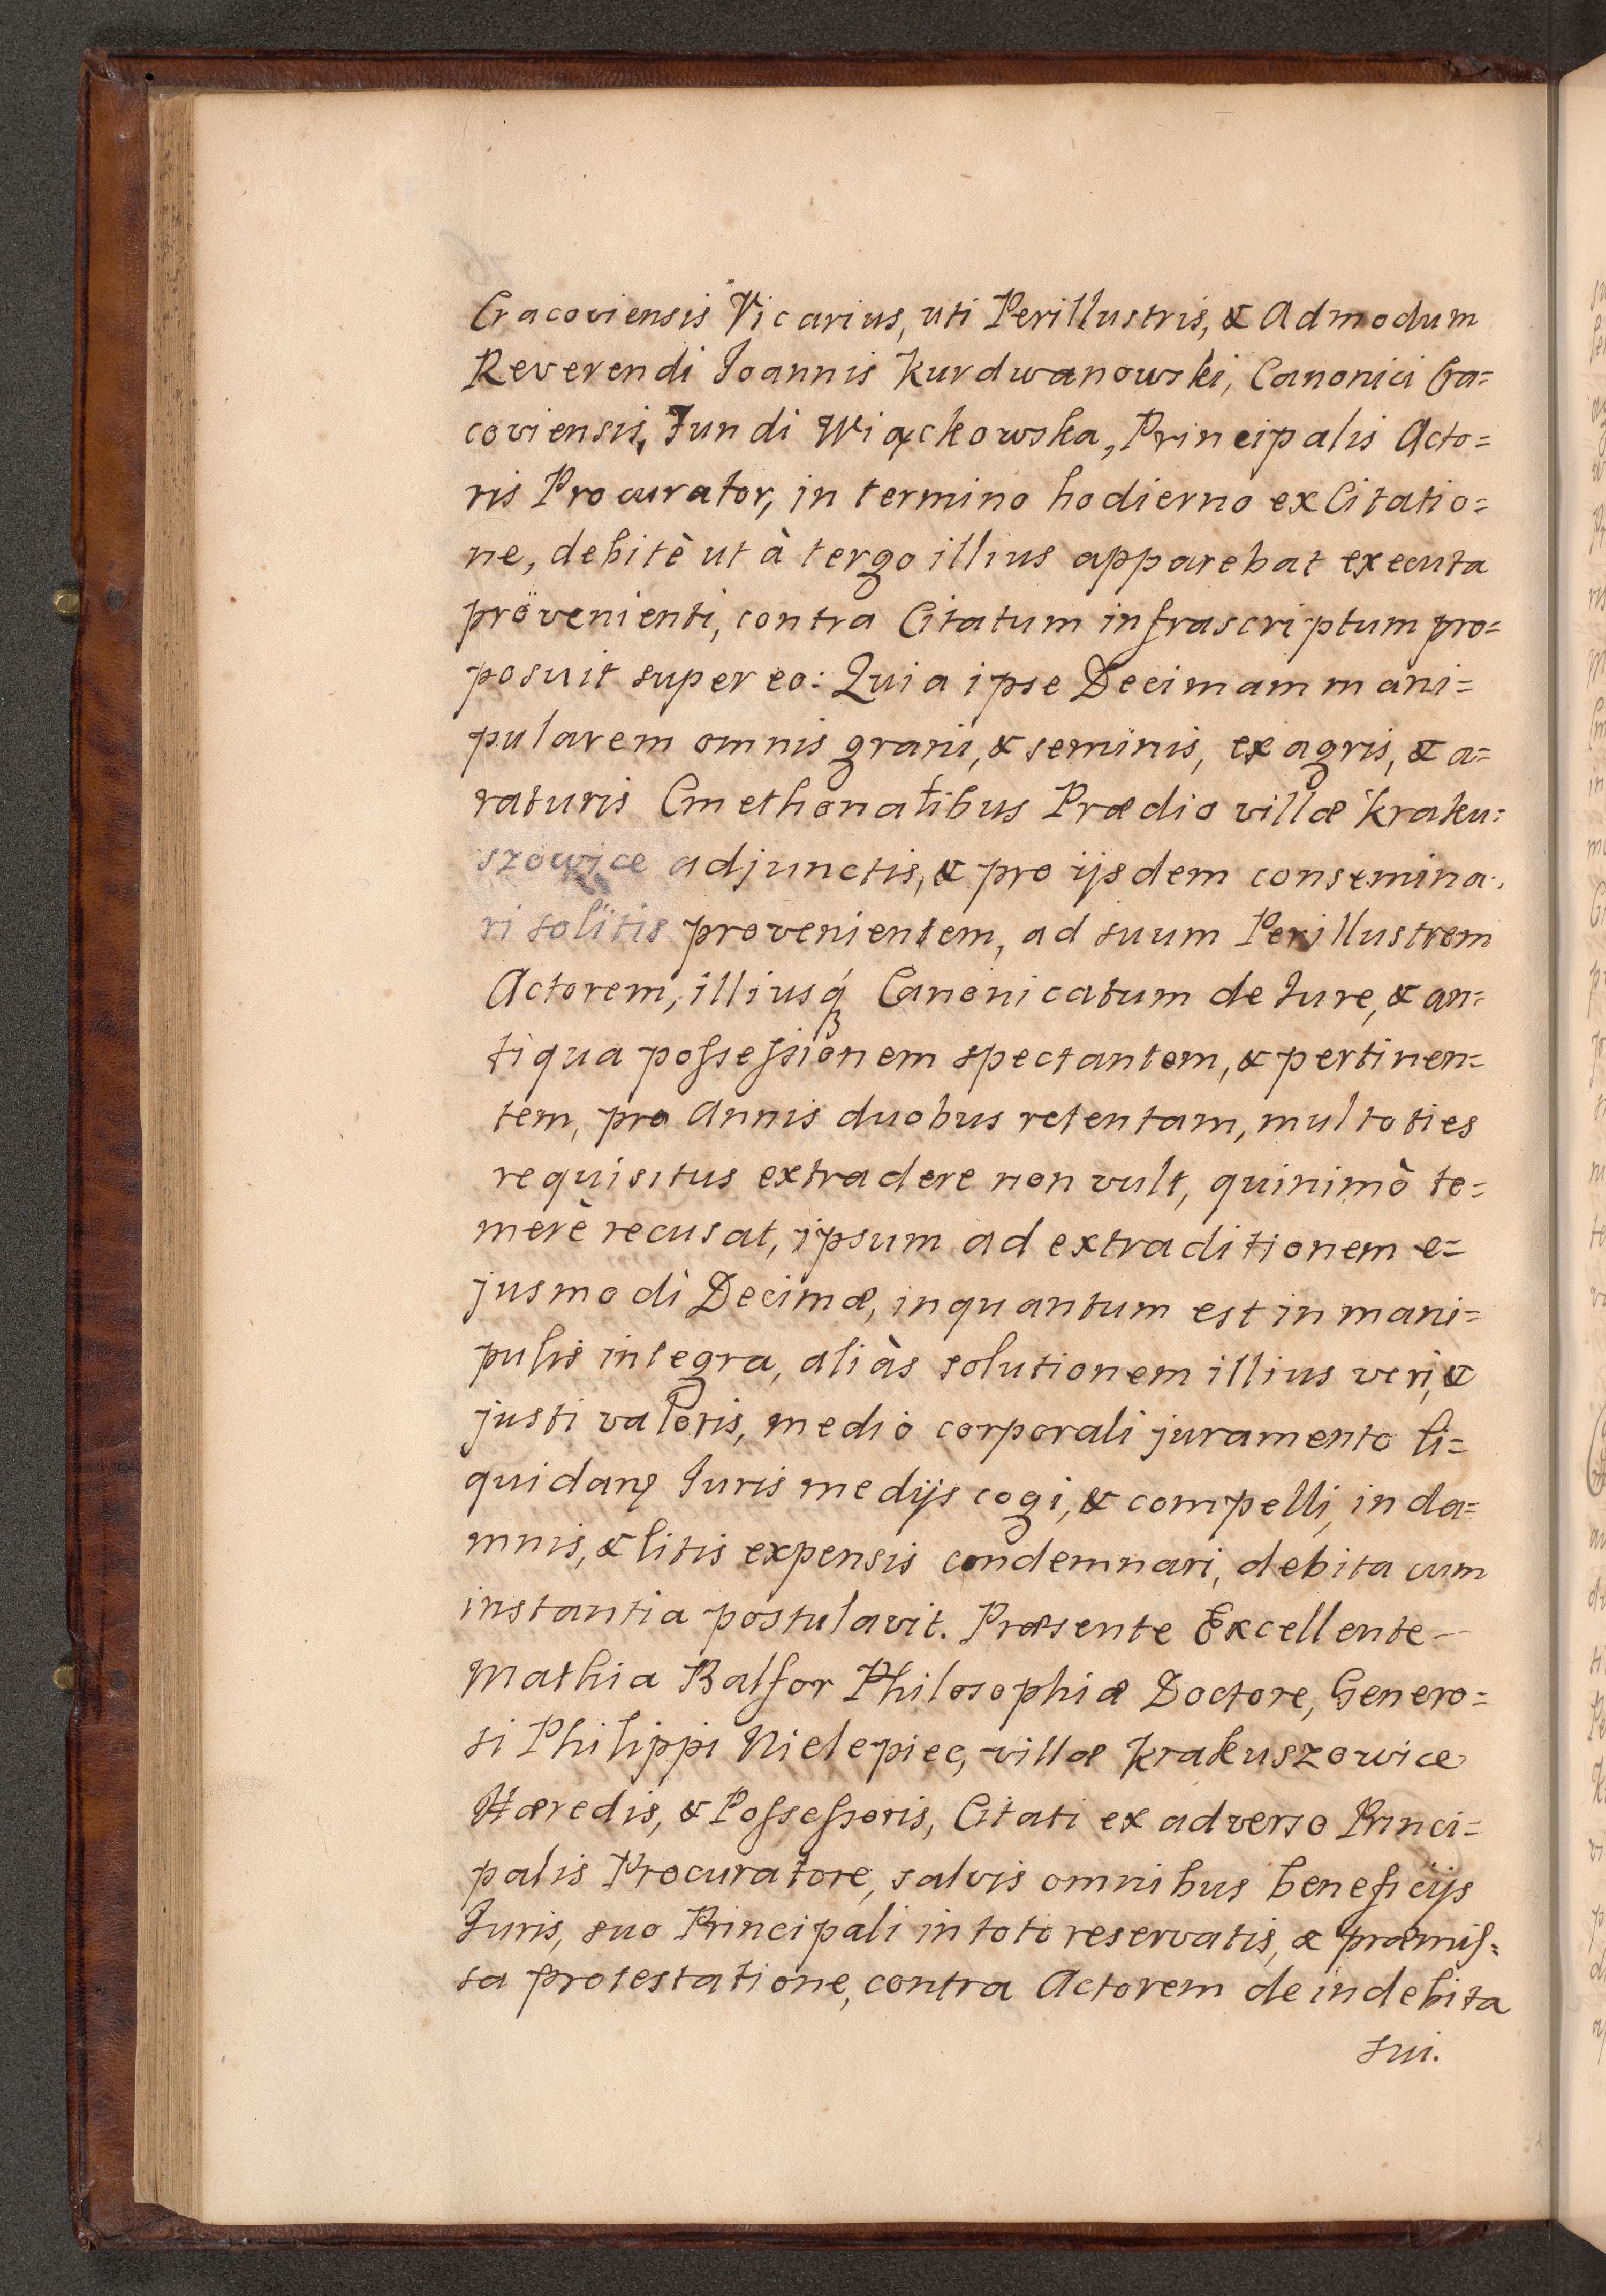 Cracoviensis Vicarius, uti Perillustris, & Admodum
Reverendi Joannis Kurdwanowski, Canonici Cra=
coviensis, Fundi Wiąckowska, Principalis Acto=
ris Procurator, in termino hodierno ex Citatio=
ne, debitè ut à tergo illius apparebat executa
provenienti, contra Citatum infrascriptum pro=
posuit super eo: Quia ipse Decimam mani=
pularem omnis grani, & seminis, ex agris, & a=
raturis Cmethonalibus Prædio villæ Kraku=
szowice adjunctis, & pro ijsdem consemina=
ri solitis provenientem, ad suum Perillustrem
Actorem, illiusq́ Canonicatum de Jure, & an=
tiqua possessionem spectantem, & pertinen=
tem, pro Annis duobus retentam, multoties
requisitus extradere non vult, quinimò te=
merè recusat, ipsum ad extraditionem e=
jusmodi Decimæ, inquantum est in mani=
pulis integra, aliàs solutionem illius veri, &
justi valoris, medio corporali juramento li=
quidanꝝ Juris medijs cogi, & compelli, in da=
mnis, & litis expensis condemnari, debita cum
instantia postulavit. Præsente Excellente
Mathia Balfor Philosophiæ Doctore, Genero=
si Philippi Nielepiec, villæ Krakuszowice
Hæredis, & Possessoris, Citati ex adverso Princi=
palis Procuratore, salvis omnibus beneficijs
Juris, suo Principali in toto reservatis, & præmis=
sa protestatione, contra Actorem de indebita
sui.